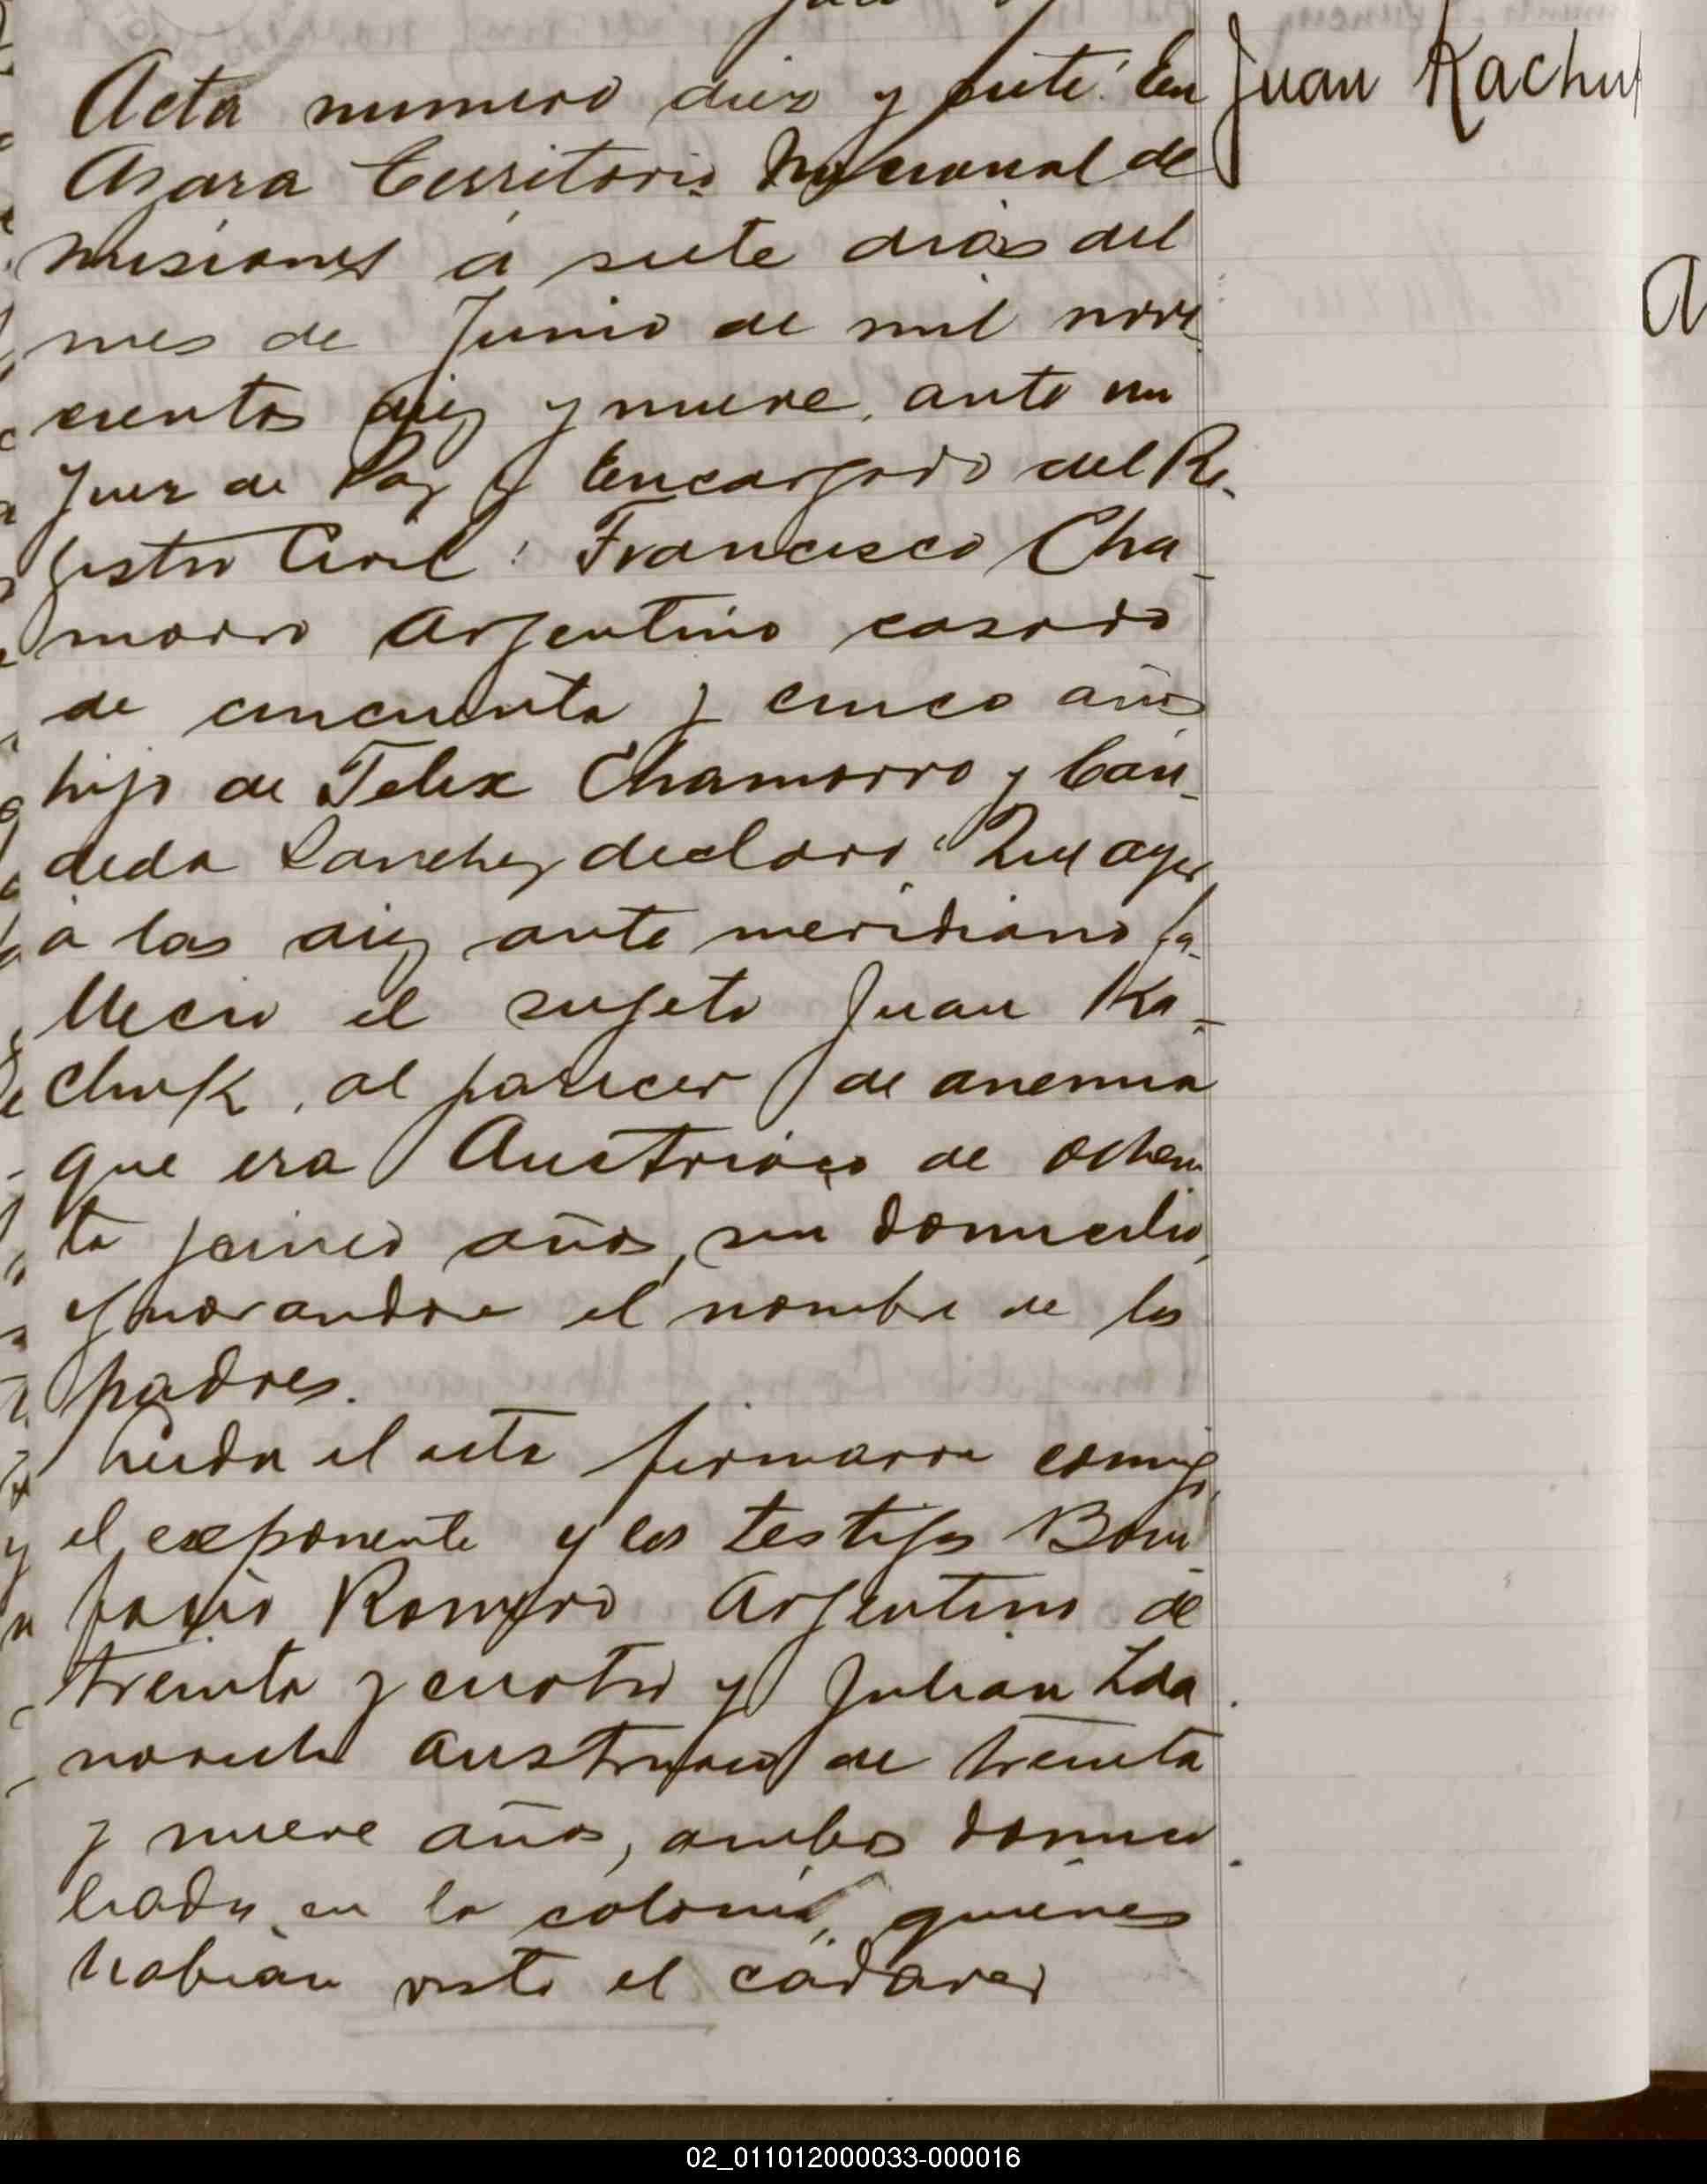 Acta numero diez y siete: En
Juan Kachu
Azara Territorio Nacional de
Misiones á siete dias del
mes de Junio de mil nove
cientos diez y nueve, ante mi
Juez de Paz y Encargado del Re-
gistro Civil: Francisco Cha-
morro Argentino casado
de cincuenta y cinco años
hijo de Felix Chamorro y Cán-
dida Sanchez declaró: Que ayer
á las diez ante meridiano fa-
lleció el sujeto Juan Ka-
chuk, al parecer de anemia
que era Austriaco de ochen
ta y cinco años, sin domicilio,
ygnorandose el nombre de los
padres.
Leida el acta firmaron comigo,
el exponente y los testigos Boni
facio Romero Argentino de
treinta y cuatro y Julian Zda
novich austriaco de treinta
y nueve años, ambos domici
liados en la colonia, quienes
habian visto el cadaver
02_011012000033-000016